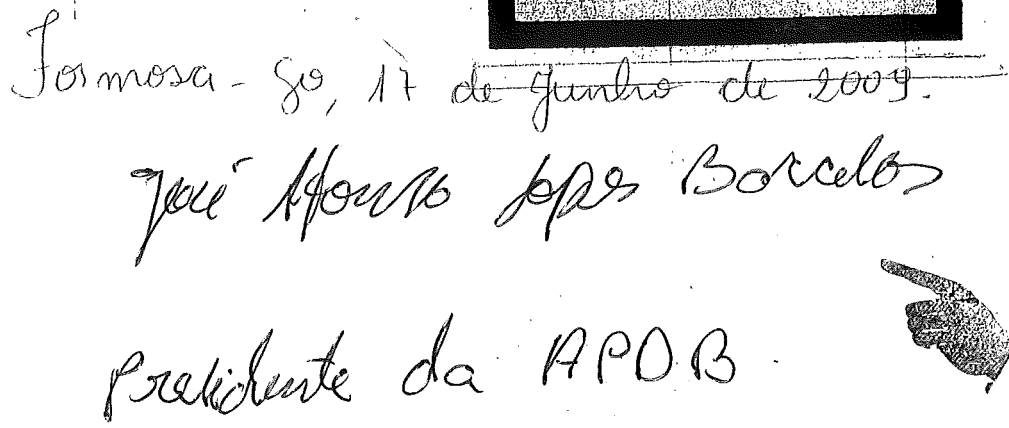 Formosa - Go, 17 de Junho de 2009.
José Afonso Lopes Barcelos
Presidente da APDB.